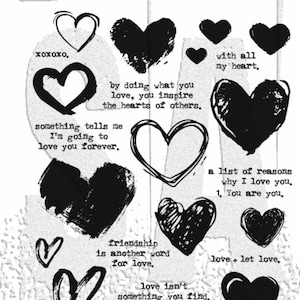 xoxoxo,
with all
my heart,
by doing what you
love, you inspire
the hearts of others.
something tells me
I'm going to
love you forever.
a list of reasons
why I love you.
1. You are you.
friendship
is another word
for love.
love + let love.
love isn't
something you find.